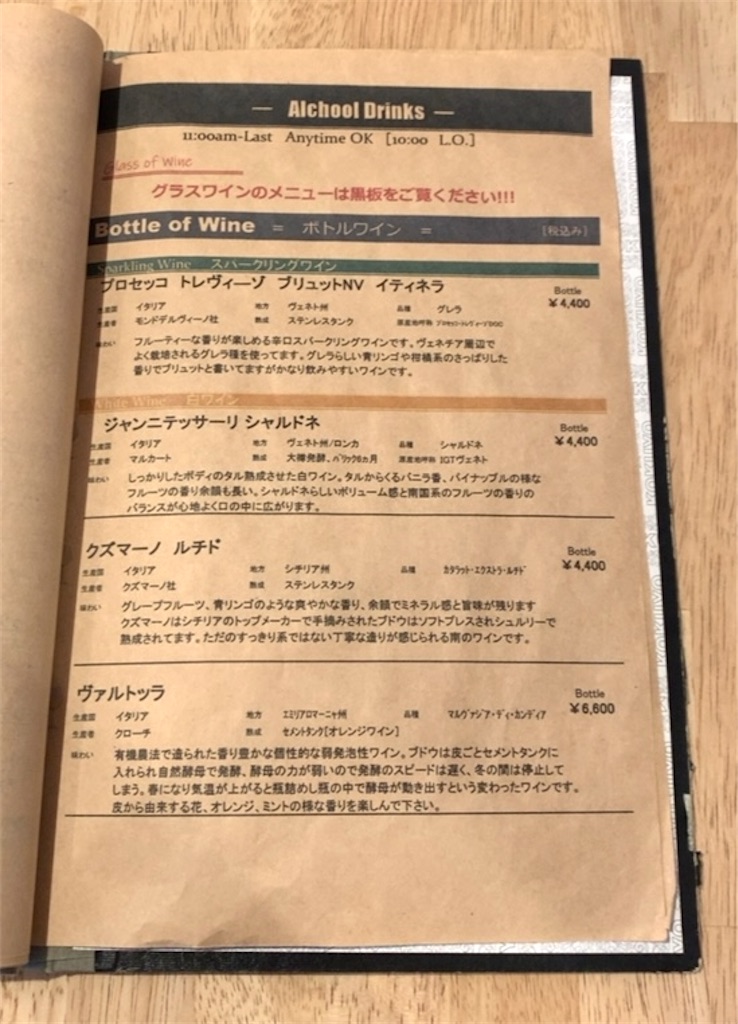 — Alchool Drinks —
11:00am-Last Anytime OK [10:00 L.O.]
Glass of Wine
グラスワインのメニューは黒板をご覧ください!!!
Bottle of Wine = ボトルワイン = [税込み]
Sparkling Wine スパークリングワイン
プロセッコ トレヴィーゾ ブリュットNV イティネラ Bottle
¥4,400
生産国 イタリア 地方 ヴェネト州 品種 グレラ
生産者 モンドデルヴィーノ社 熟成 ステンレスタンク 原産地呼称 プロセッコ・トレヴィーゾDOC
味わい フルーティーな香りが楽しめる辛口スパークリングワインです。ヴェネチア周辺で
よく栽培されるグレラ種を使ってます。グレラらしい青リンゴや柑橘系のさっぱりした
香りでブリュットと書いてますがかなり飲みやすいワインです。
White Wine 白ワイン
ジャンニテッサーリ シャルドネ Bottle
¥4,400
生産国 イタリア 地方 ヴェネト州/ロンカ 品種 シャルドネ
生産者 マルカート 熟成 大樽発酵、バリック6ヵ月 原産地呼称 IGTヴェネト
味わい しっかりしたボディのタル熟成させた白ワイン。タルからくるバニラ香、パイナップルの様な
フルーツの香り余韻も長い。シャルドネらしいボリューム感と南国系のフルーツの香りの
バランスが心地よく口の中に広がります。
クズマーノ ルチド Bottle
¥4,400
生産国 イタリア 地方 シチリア州 品種 カタラット・エクストラ・ルチド
生産者 クズマーノ社 熟成 ステンレスタンク
味わい グレープフルーツ、青リンゴのような爽やかな香り、余韻でミネラル感と旨味が残ります
クズマーノはシチリアのトップメーカーで手摘みされたブドウはソフトプレスされシュルリーで
熟成されてます。ただのすっきり系ではない丁寧な造りが感じられる南のワインです。
ヴァルトッラ Bottle
¥6,600
生産国 イタリア 地方 エミリアロマーニャ州 品種 マルヴァジア・ディ・カンディア
生産者 クローチ 熟成 セメントタンク[オレンジワイン]
味わい 有機農法で造られた香り豊かな個性的な弱発泡性ワイン。ブドウは皮ごとセメントタンクに
入れられ自然酵母で発酵、酵母の力が弱いので発酵のスピードは遅く、冬の間は停止して
しまう。春になり気温が上がると瓶詰めし瓶の中で酵母が動き出すという変わったワインです。
皮から由来する花、オレンジ、ミントの様な香りを楽しんで下さい。